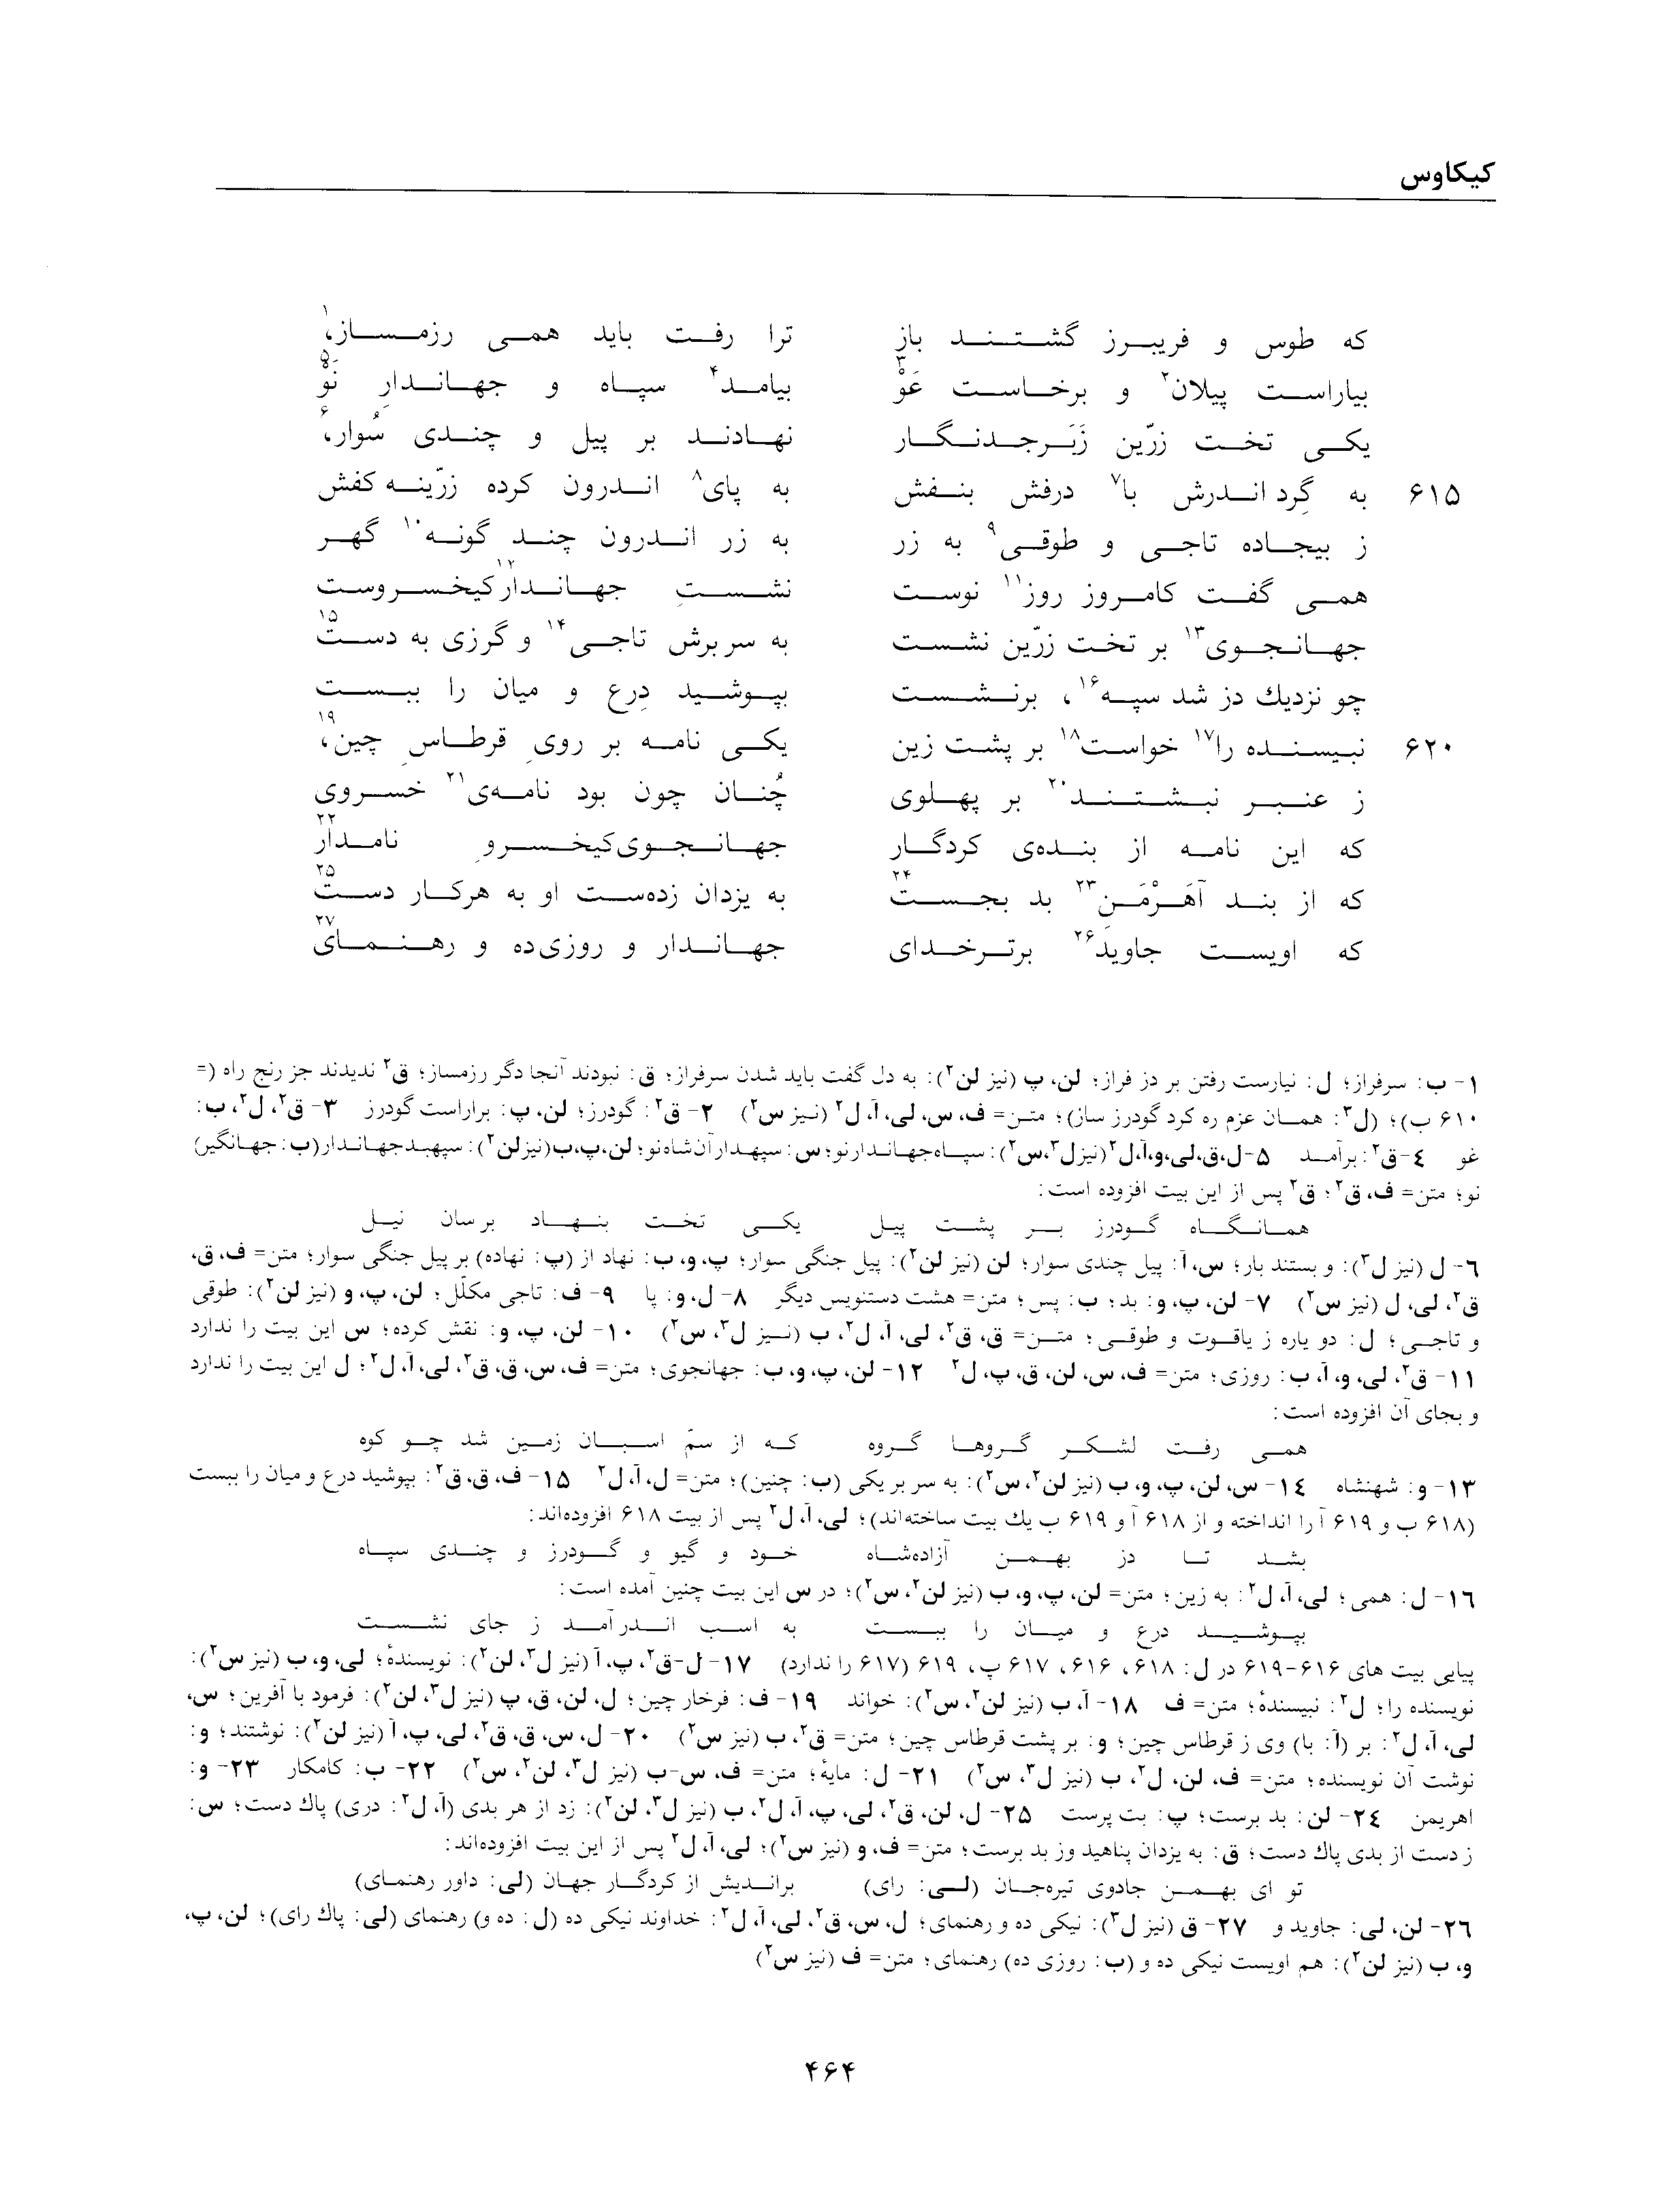 کیکاوس
که طوس و فریبرز گشتند باز ترا رفت باید همی رزمساز،۱
بیاراست پیلان۲ و برخاست غَوْ۳ بیامد۴ سپاه و جهاندارِ نَوْ۵
یکی تخت زرّین زَبَرجدنگار نهادند بر پیل و چندی سُوار،۶
۶۱۵ به گِرد اندرش با۷ درفش بنفش به پای۸ اندرون کرده زرّینه کفش
ز بیجاده تاجی و طوقی۹ به زر به زر اندرون چند گونه۱۰ گهر
همی گفت کامروز روز۱۱ نوست نشستِ جهاندار۱۲ کیخسروست
جهانجوی۱۳ بر تخت زرّین نشست به سر برش تاجی۱۴ و گرزی به دست۱۵
چو نزدیك دز شد سپه۱۶، برنشست بپوشید دِرع و میان را ببست
۶۲۰ نبیسنده را۱۷ خواست۱۸ بر پشت زین یکی نامه بر رویِ قرطاسِ چین،۱۹
ز عنبر نبشتند۲۰ بر پهلوی چُنان چون بود نامه‌ی۲۱ خسروی
که این نامه از بنده‌ی کردگار جهانجوی کیخسروِ نامدار۲۲
که از بند آهَرْمَنِ۲۳ بد بجست۲۴ به یزدان زده‌ست او به هرکار دست۲۵
که اویست جاوید۲۶ برترخدای جهاندار و روزی‌ده و رهنمای۲۷
۱- ب: سرفراز؛ ل: نیارست رفتن بر دز فراز؛ لن، پ (نیز لن۲): به دل گفت باید شدن سرفراز؛ ق: نبودند آنجا دگر رزمساز؛ ق۲ ندیدند جز رنج راه (=
۶۱۰ ب)؛ (ل۳: همان عزم ره کرد گودرز ساز)؛ متن= ف، س، لی، آ، ل۲ (نیز س۲) ۲- ق۲: گودرز؛ لن، پ: براراست گودرز ۳- ق۲، ل۲، ب:
غو ۴- ق۲: برآمد ۵- ل، ق، لی، و، آ، ل۲ (نیز ل۳، س۲): سپاه جهاندار نو؛ س: سپهدار آن شاه نو؛ لن، پ، ب (نیز لن۲): سپهبد جهاندار (ب: جهانگیر)
نو؛ متن= ف، ق۲؛ ق۲ پس از این بیت افزوده است:
همانگاه گودرز بر پشت پیل یکی تخت بنهاد برسان نیل
۶- ل (نیز ل۳): و بستند بار؛ س، آ: پیل چندی سوار؛ لن (نیز لن۲): پیل جنگی سوار؛ پ، و، ب: نهاد از (پ: نهاده) بر پیل جنگی سوار؛ متن= ف، ق،
ق۲، لی، ل (نیز س۲) ۷- لن، پ، و: بد؛ ب: پس؛ متن= هشت دستنویس دیگر ۸- ل، و: پا ۹- ف: تاجی مکلّل؛ لن، پ، و (نیز لن۲): طوقی
و تاجی؛ ل: دو یاره ز یاقوت و طوقی؛ متن= ق، ق۲، لی، آ، ل۲، ب (نیز ل۳، س۲) ۱۰- لن، پ، و: نقش کرده؛ س این بیت را ندارد
۱۱- ق۲، لی، و، آ، ب: روزی؛ متن= ف، س، لن، ق، پ، ل۲ ۱۲- لن، پ، و، ب: جهانجوی؛ متن= ف، س، ق، ق۲، لی، آ، ل۲؛ ل این بیت را ندارد
و بجای آن افزوده است:
همی رفت لشکر گروها گروه که از سمّ اسبان زمین شد چو کوه
۱۳- و: شهنشاه ۱۴- س، لن، پ، و، ب (نیز لن۲، س۲): به سر بر یکی (ب: چنین)؛ متن= ل، آ، ل۲ ۱۵- ف، ق، ق۲: بپوشید درع و میان را ببست
(۶۱۸ ب و ۶۱۹ آ را انداخته و از ۶۱۸ آ و ۶۱۹ ب یك بیت ساخته‌اند)؛ لی، آ، ل۲ پس از بیت ۶۱۸ افزوده‌اند:
بشد تا دز بهمن آزاده‌شاه خود و گیو و گودرز و چندی سپاه
۱۶- ل: همی؛ لی، آ، ل۲: به زین؛ متن= لن، پ، و، ب (نیز لن۲، س۲)؛ در س این بیت چنین آمده است:
بپوشید درع و میان را ببست به اسب اندرآمد ز جای نشست
پیاپی بیت های ۶۱۶-۶۱۹ در ل: ۶۱۸، ۶۱۶، ۶۱۷ پ، ۶۱۹ (۶۱۷ را ندارد) ۱۷- ل-ق۲، پ، آ (نیز ل۳، لن۲): نویسندهٔ؛ لی، و، ب (نیز س۲):
نویسنده را؛ ل۲: نبیسندهٔ؛ متن= ف ۱۸- آ، ب (نیز لن۲، س۲): خواند ۱۹- ف: فرخار چین؛ ل، لن، ق، پ (نیز ل۳، لن۲): فرمود با آفرین؛ س،
لی، آ، ل۲: بر (آ: با) وی ز قرطاس چین؛ و: بر پشت قرطاس چین؛ متن= ق۲، ب (نیز س۲) ۲۰- ل، س، ق، ق۲، لی، پ، آ (نیز لن۲): نوشتند؛ و:
نوشت آن نویسنده؛ متن= ف، لن، ل۲، ب (نیز ل۳، س۲) ۲۱- ل: مایهٔ؛ متن= ف، س-ب (نیز ل۳، لن۲، س۲) ۲۲- ب: کامکار ۲۳- و:
اهریمن ۲۴- لن: بد برست؛ پ: بت پرست ۲۵- ل، لن، ق۲، لی، پ، آ، ل۲، ب (نیز ل۳، لن۲): زد از هر بدی (آ، ل۲: دری) پاك دست؛ س:
ز دست از بدی پاك دست؛ ق: به یزدان پناهید وز بد برست؛ متن= ف، و (نیز س۲)؛ لی، آ، ل۲ پس از این بیت افزوده‌اند:
تو ای بهمن جادوی تیره‌جان (لی: رای) براندیش از کردگار جهان (لی: داور رهنمای)
۲۶- لن، لی: جاوید و ۲۷- ق (نیز ل۳): نیکی ده و رهنمای؛ ل، س، ق۲، لی، آ، ل۲: خداوند نیکی ده (ل: ده و) رهنمای (لی: پاك رای)؛ لن، پ،
و، ب (نیز لن۲): هم اویست نیکی ده و (ب: روزی ده) رهنمای؛ متن= ف (نیز س۲)
۴۶۴